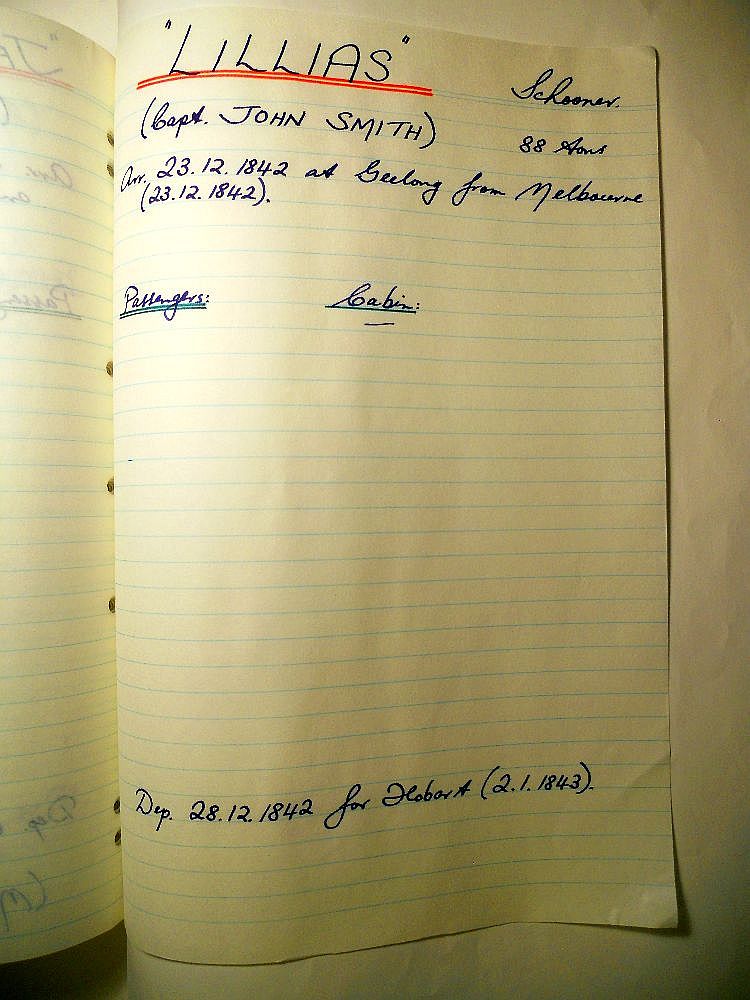 "LILLIAS"
Schooner.
(Capt. JOHN SMITH)
88 tons
Arr. 23.12.1842 at Geelong from Melbourne
(23.12.1842).
Passengers: Cabin:
—
Dep. 28.12.1842 for Hobart (2.1.1843).